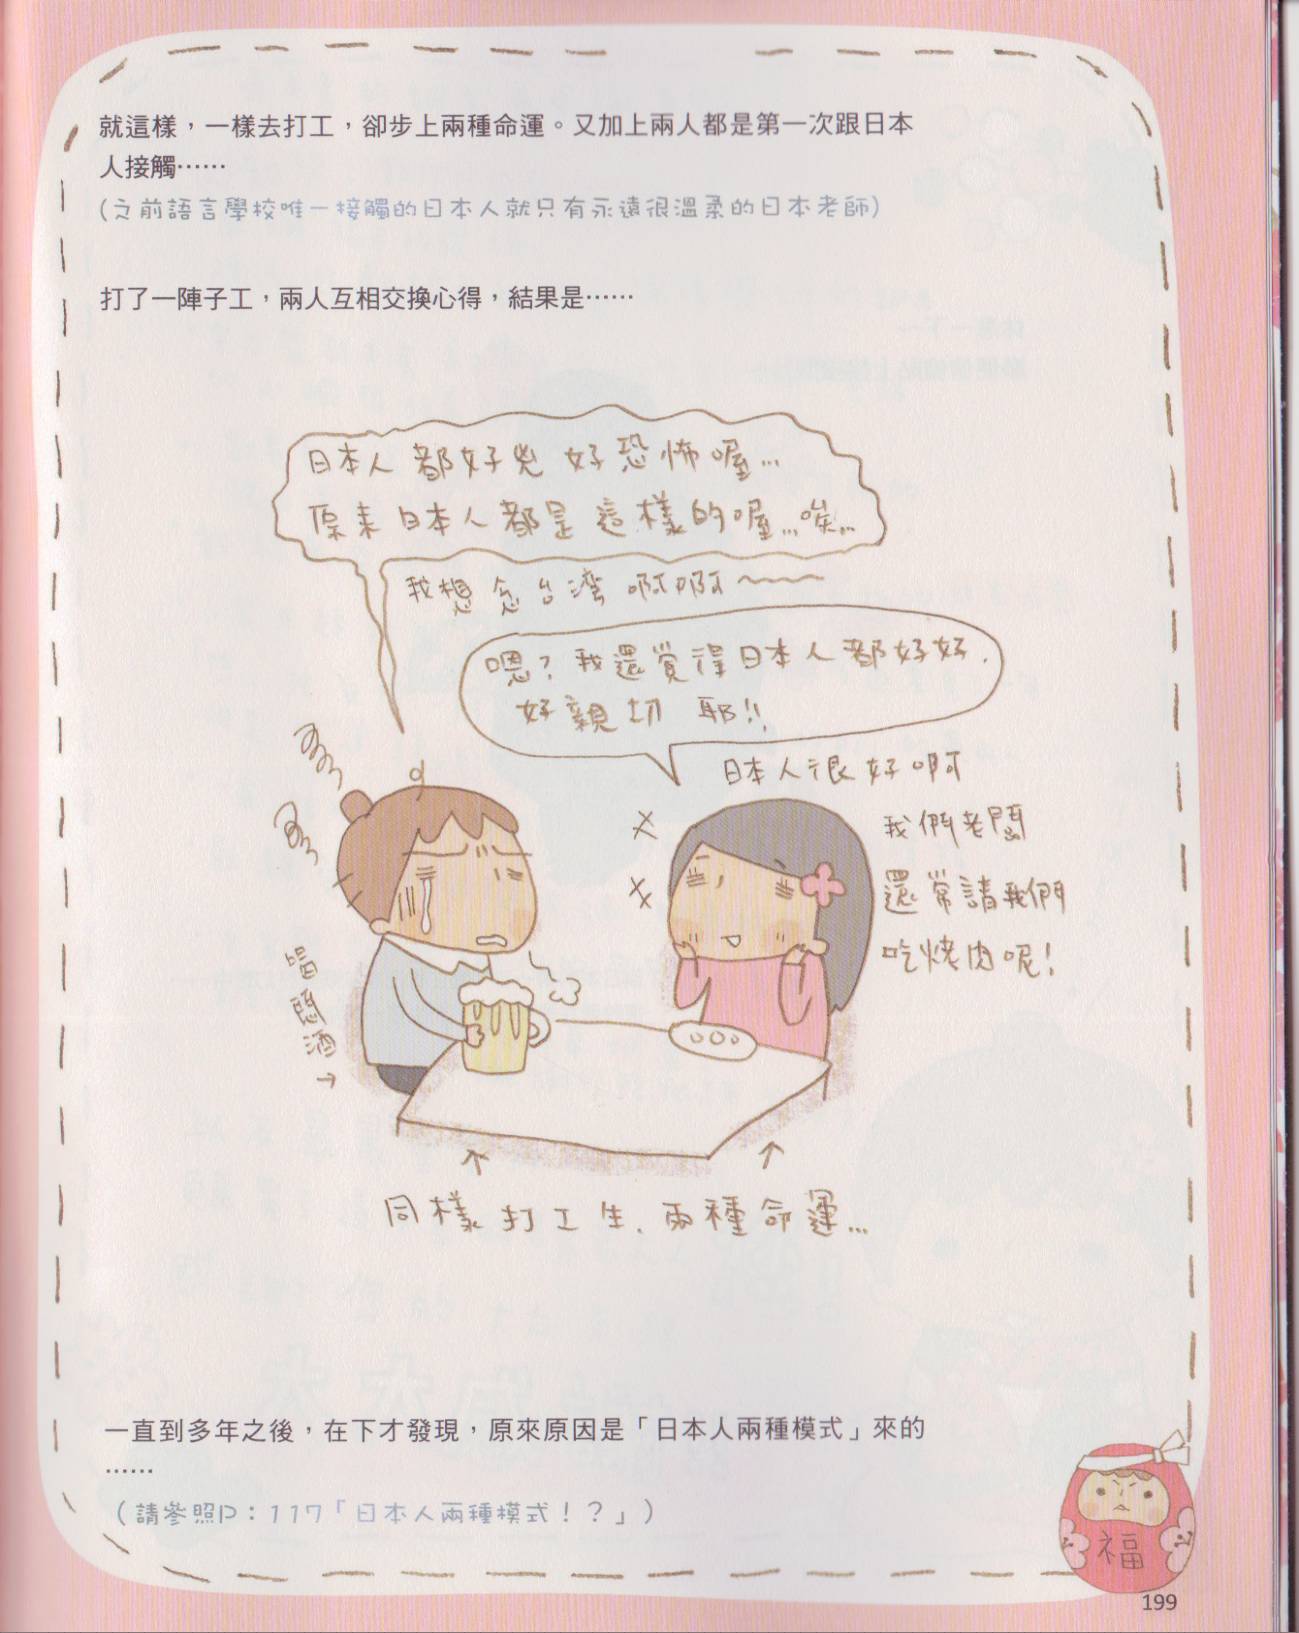 就這樣，一樣去打工，卻步上兩種命運。又加上兩人都是第一次跟日本
人接觸……
(之前語言學校唯一接觸的日本人就只有永遠很溫柔的日本老師)
打了一陣子工，兩人互相交換心得，結果是……
日本人都好兇好恐怖喔...
原來日本人都是這樣的喔...唉...
我想念台灣啊啊～～
嗯？我還覺得日本人都好好．
好親切耶!!
日本人很好啊
我們老闆
還常請我們
吃烤肉呢！
喝悶酒→
同樣打工生．兩種命運...
一直到多年之後，在下才發現，原來原因是「日本人兩種模式」來的
……
（請參照P：117「日本人兩種模式！？」）
福
199